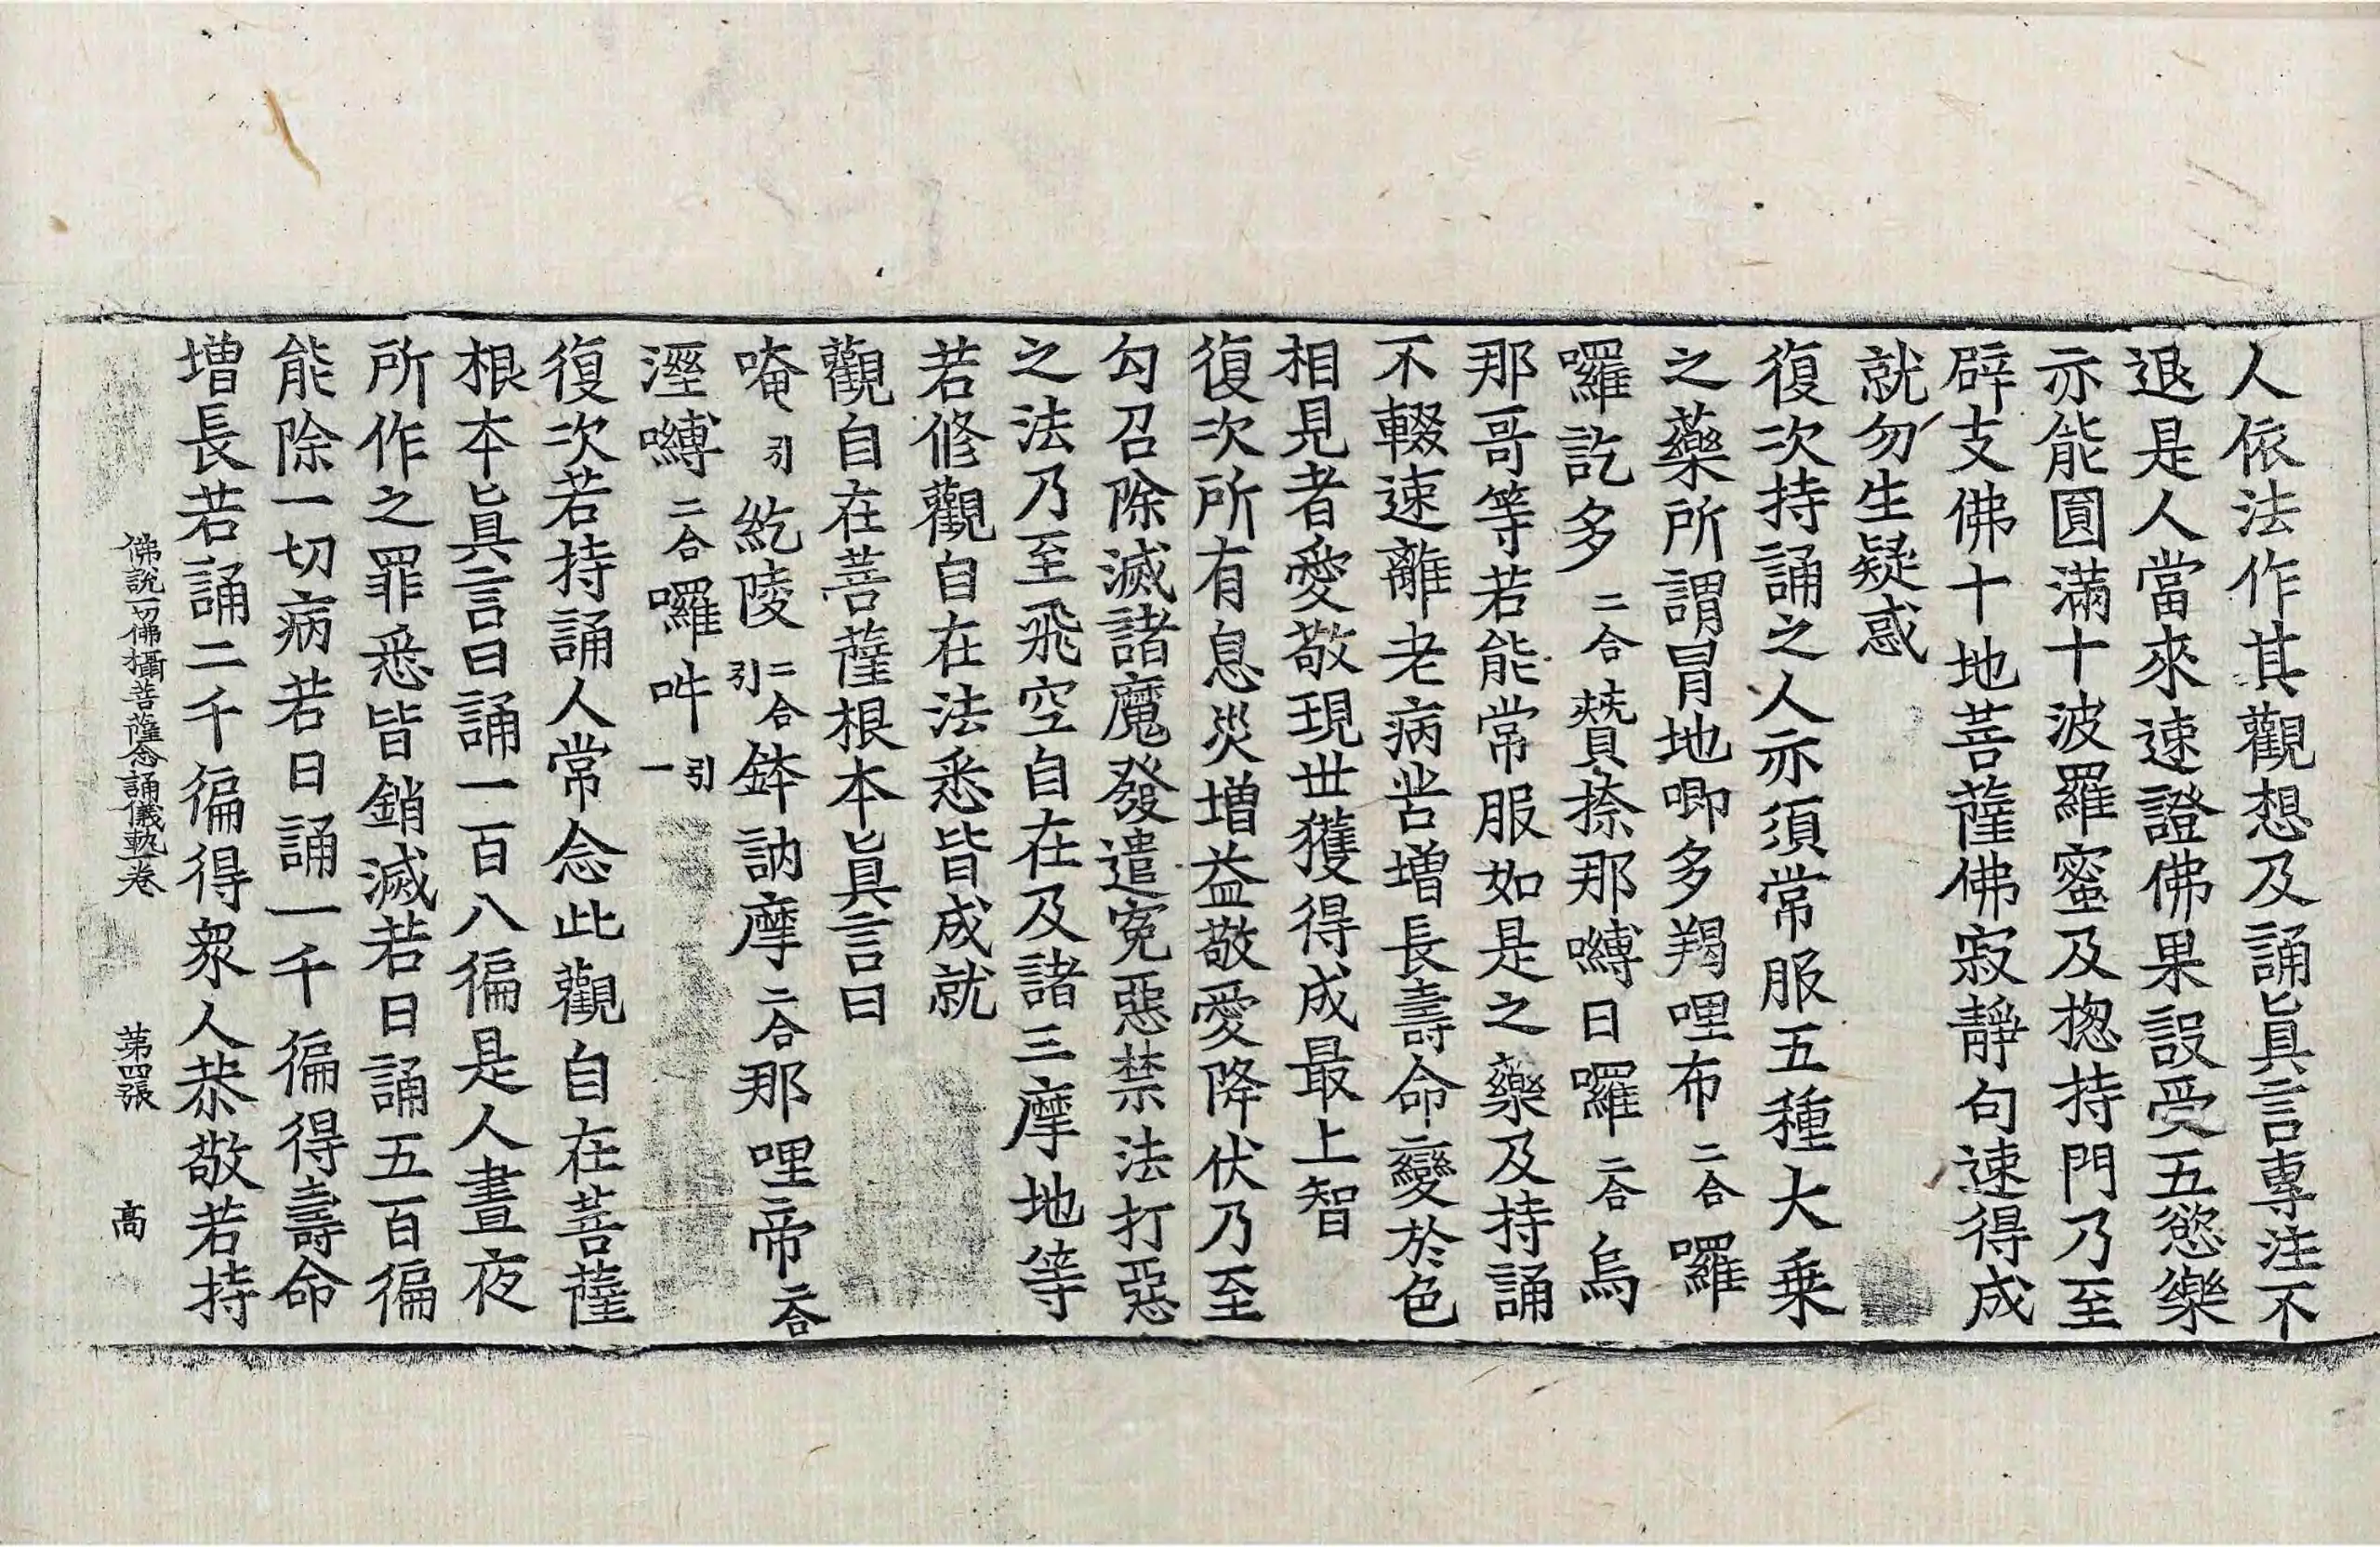 人依法作其觀想及誦眞言專注不
退是人當來速證佛果設受五慾樂
亦能圓滿十波羅蜜及揔持門乃至
辟支佛十地菩薩佛寂靜句速得成
就勿生疑惑
復次持誦之人亦須常服五種大乗
之藥所謂冒地唧多羯哩布二合囉
囉訖多二合贊捺那嚩日囉二合烏
那哥等若能常服如是之藥及持誦
不輟速離老病苦增長壽命變於色
相見者愛敬現世獲得成最上智
復次所有息災增益敬愛降伏乃至
勾召除滅諸魔發遣寃惡禁法打惡
之法乃至飛空自在及諸三摩地等
若修觀自在法悉皆成就
觀自在菩薩根本眞言曰
唵引紇陵二合引鉢訥摩二合那哩帝二合
溼嚩二合囉吽引一
復次若持誦人常念此觀自在菩薩
根本眞言日誦一百八徧是人晝夜
所作之罪悉皆銷滅若日誦五百徧
能除一切病若日誦一千徧得壽命
增長若誦二千徧得衆人恭敬若持
佛說一切佛攝菩薩念誦儀軌卷 第四張 高